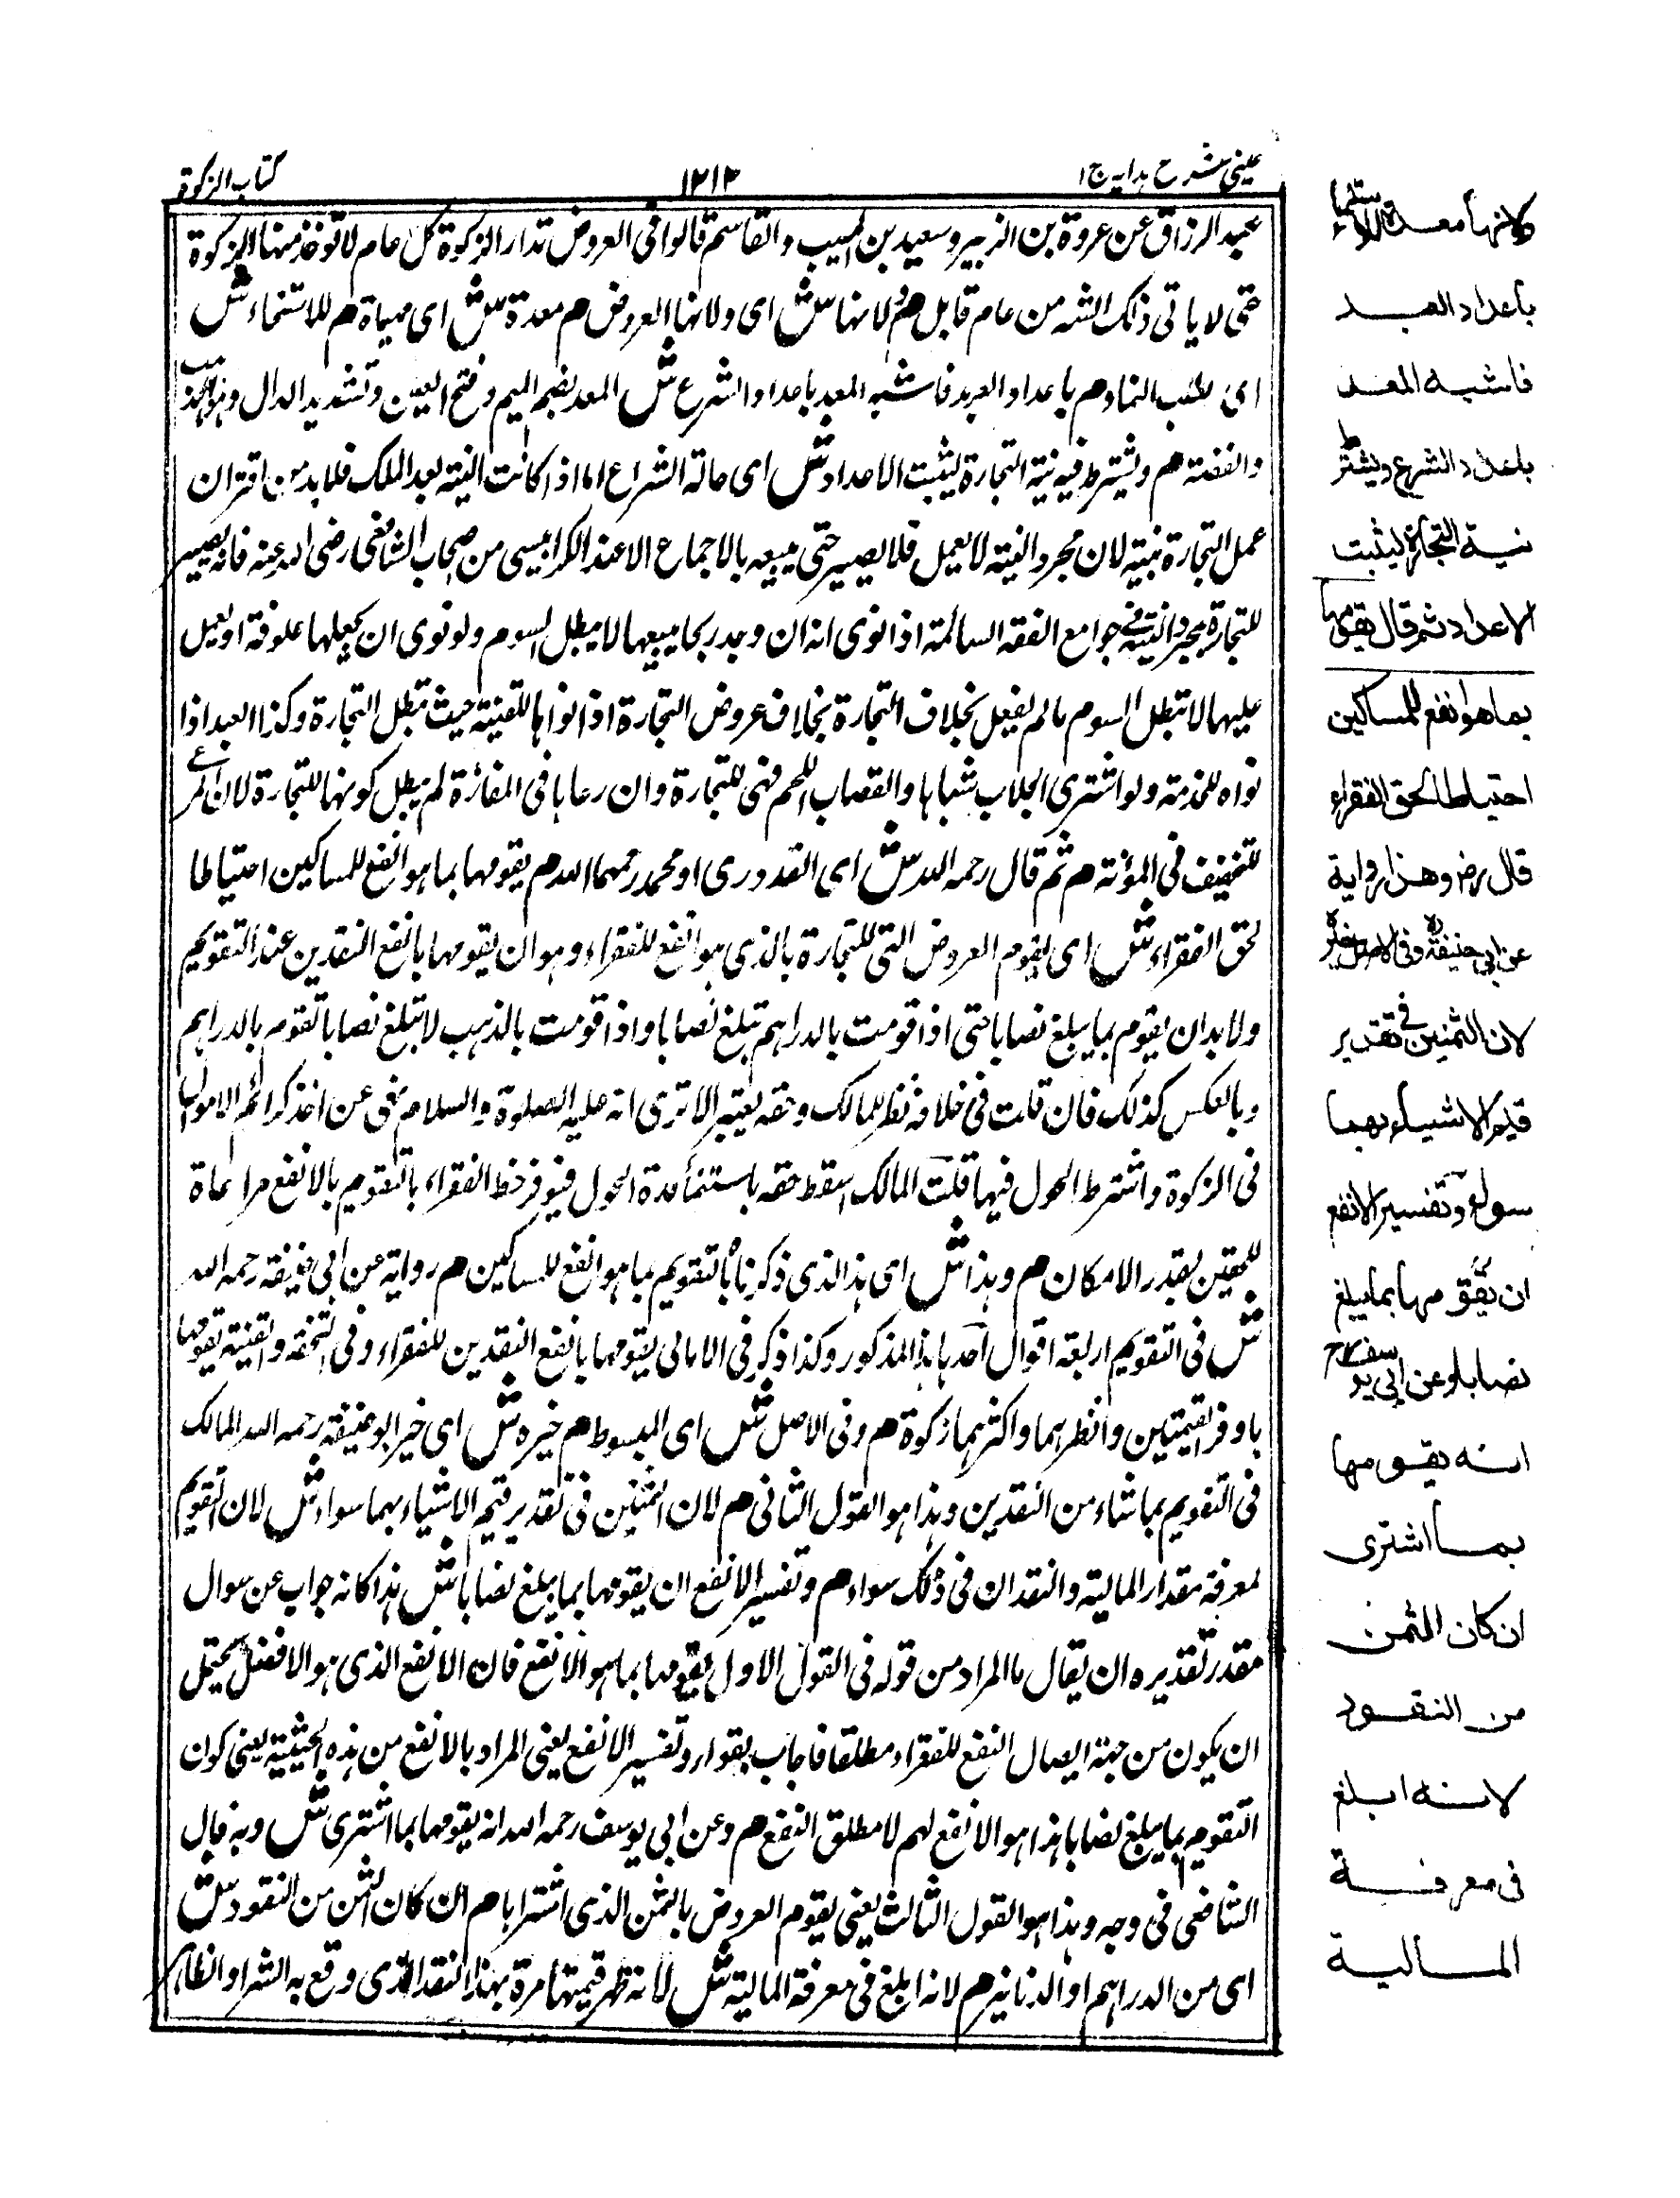 عینی شرح ہدایہ ج ۱
۱۲۱۲
کتاب الزکوة
عبد الرزاق عن عروة بن الزبیر و سعید بن المسیب و القاسم قالوا فی العروض تدار الزکوة کل عام لا تؤخذ منها الزکوة
حتی لا یاتی ذلک الشهر من عام قابل هم و لانها ش ای و لانها العروض هم معدة ش ای مهیاة هم للاستنماء ش
ای طلب النماء هم باعداد العبد فاشبه المعد باعداد الشرع ش المعد بضم المیم و فتح العین و تشدید الدال و هو الذهب
والفضة هم و یشترط فیه نیة التجارة لیثبت الاعداد ش ای حالة الشراع اما اذا کانت النیة بعد الملک فلا بد من اقتران
عمل التجارة بنیة لان مجرد النیة لا یعمل فلا یصیر حتی یبیعه بالاجماع الا عند الکرابیسی من اصحاب الشافعی رضی الله عنه فانه یصیر
للتجارة بمجرد النیة فی جوامع الفقه السائمة اذا نوی انه ان وجد ربحا یبیعها لا یبطل السوم و لو نوی ان یجعلها علوفة او یعمل
علیها لا تبطل السوم ما لم یفعل بخلاف التجارة بخلاف عروض التجارة اذا نواها للقنیة حیث تبطل التجارة و کذا العبد اذا
نواه للخدمة و لو اشتری الجلاب شیاها و القصاب اللحم فهی للتجارة و ان رعاها فی المفازة لم یبطل کونها للتجارة لان
للتخفیف فی المؤنة هم ثم قال رحمه الله ش ای القدوری او محمد رحمهما الله هم یقومها بما هو انفع للمساکین احتیاطا
لحق الفقراء ش ای یقوم العروض التی للتجارة بالذی هو انفع للفقراء و هو ان یقومها بانفع النقدین عند التقویم
و لا بد ان یقوم بما یبلغ نصابا حتی اذا قومت بالدراهم تبلغ نصابا و اذا قومت بالذهب لا تبلغ نصابا تقوم بالدراهم
و بالعکس کذلک فان قلت فی خلافه نظر للمالک و حقه یعتبر الا تری انه علیه الصلوة و السلام نهی عن اخذ کرائم الاموال
فی الزکوة و اشترط الحول فیها قلت المالک اسقط حقه باستنمأ مدة الحول فیوفر حظ الفقراء بالتقویم بالانفع مراعاة
للحقین بقدر الامکان هم و هذا ش ای هذا الذی ذکرنا بالتقویم بما هو انفع للمساکین هم روایة عن ابی حنیفة رحمه الله
ش فی التقویم اربعة اقوال احدها هذا المذکور و کذا ذکر فی الامالی یقومها بانفع النقدین للفقراء و فی التحفة و القنیة یقومها
باوفر القیمتین و انظرهما و اکثرهما زکوة هم و فی الاصل ش ای المبسوط هم خیره ش ای خیر ابو حنیفة رحمه الله المالک
فی التقویم بما شاء من النقدین و هذا هو القول الثانی هم لان الثمنین فی تقدیر قیم الاشیاء بهما سواء ش لان التقویم
لمعرفة مقدار المالیة و النقدان فی ذلک سواء هم و تفسیر الانفع ان یقومها بما یبلغ نصابا ش هذا کانه جواب عن سوال
مقدر تقدیره ان یقال ما المراد من قوله فی القول الاول یقومها بما هو الانفع فان الانفع الذی هو الافضل یحتمل
ان یکون من جهة ایصال النفع للفقراء مطلقا فاجاب بقوله و تفسیر الانفع یعنی المراد بالانفع من هذه الحیثیة یعنی کون
التقویم بما یبلغ نصابا هذا هو الانفع لهم لا مطلق النفع هم و عن ابی یوسف رحمه الله انه یقومها بما اشتری ش و به قال
الشافعی فی وجه و هذا هو القول الثالث یعنی یقوم العروض بالثمن الذی اشتراها هم ان کان الثمن من النقود ش
ای من الدراهم او الدنانیر هم لانه ابلغ فی معرفة المالیة ش لانه ظهر قیمتها مرة بهذا النقد الذی وقع به الشراء و الظاهر
و لانها معدة للاستنماء
باعداد العبد
فاشبه المعد
باعداد الشرع و یشترط
نیة التجارة لیثبت
الاعداد ثم قال یقومها
بما هو انفع للمساکین
احتیاطا لحق الفقراء
قال رض و هذا روایة
عن ابی حنیفة و فی الاصل خیره
لان الثمنین فی تقدیر
قیم الاشیاء بهما
سواء و تفسیر الانفع
ان یقومها بما یبلغ
نصابا و عن ابی یوسف
انه یقومها
بما اشتری
ان کان الثمن
من النقود
لانه ابلغ
فی معرفة
المالیة